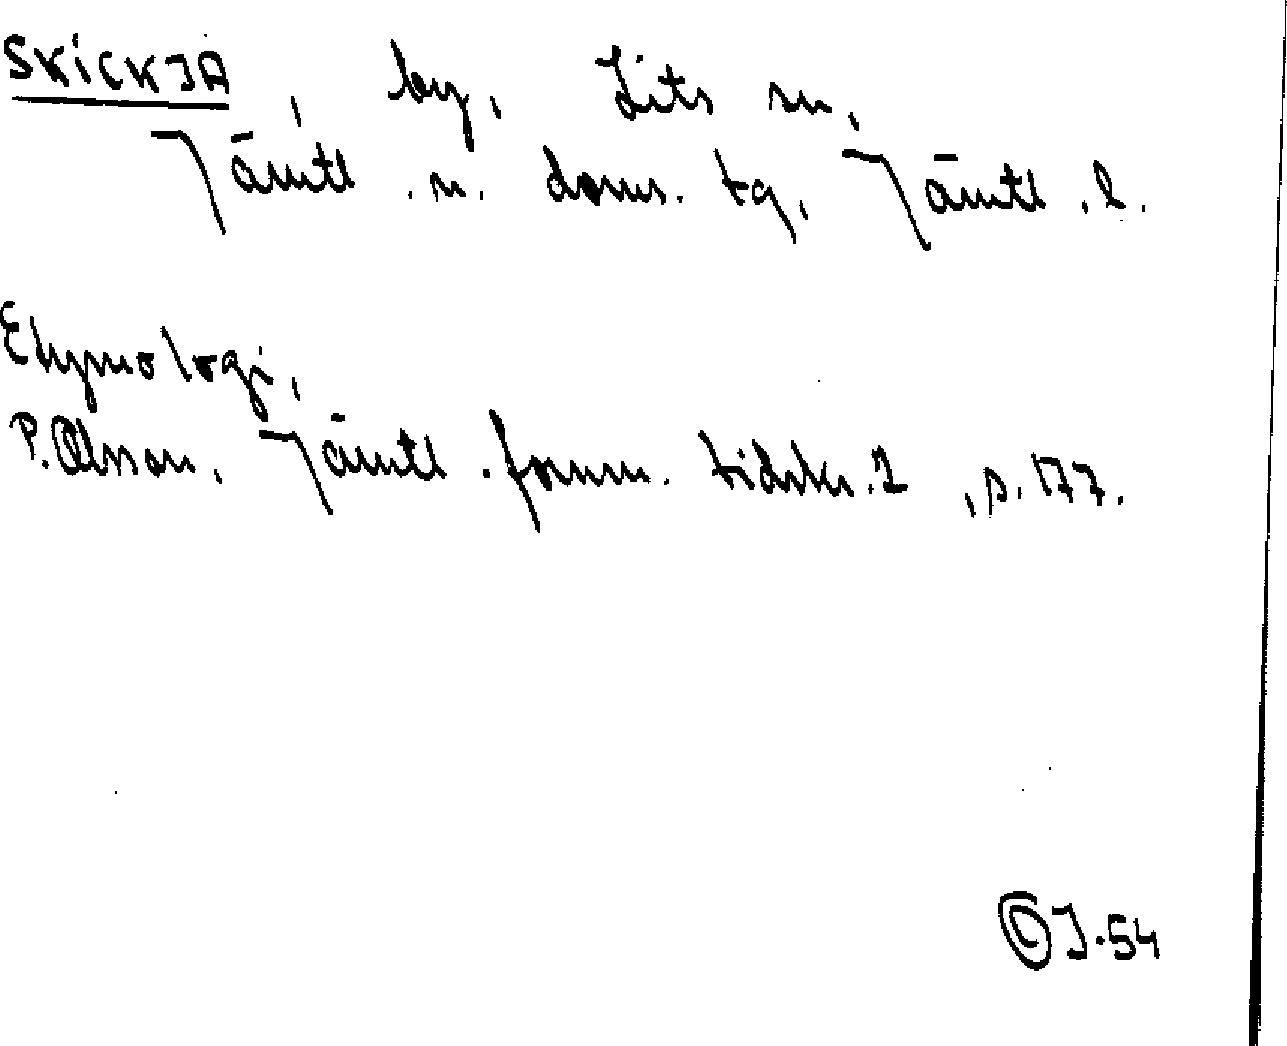 SKICKJA, by, Lits sn,
Jämtl. n. doms. tg, Jämtl. l.
Etymologi,
P. Olsson, Jämtl. fornm. tidskr. 2, s. 177.
©J-54